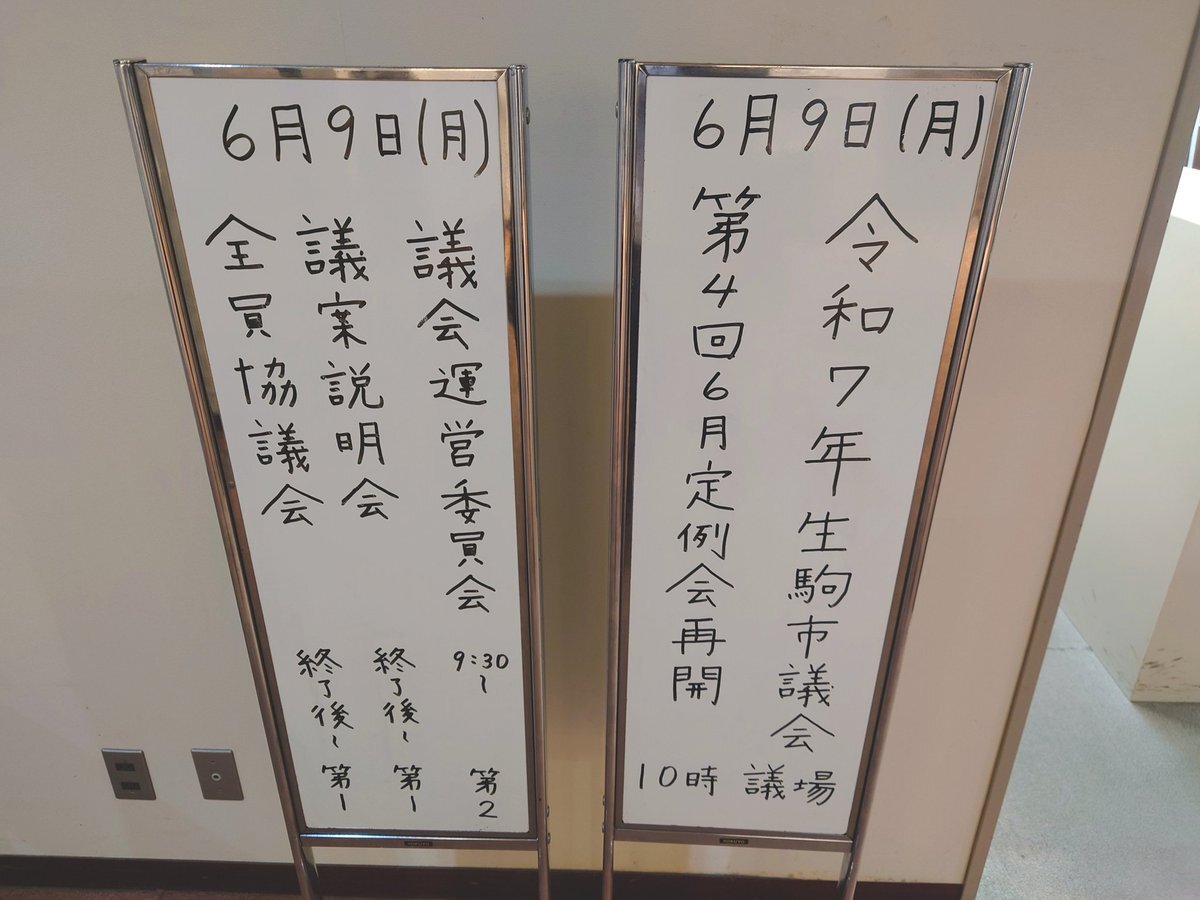 6月9日(月)
議会運営委員会 9:30〜 第2
議案説明会 終了後〜 第1
全員協議会 終了後〜 第1
6月9日(月)
令和7年生駒市議会
第4回6月定例会再開
10時 議場